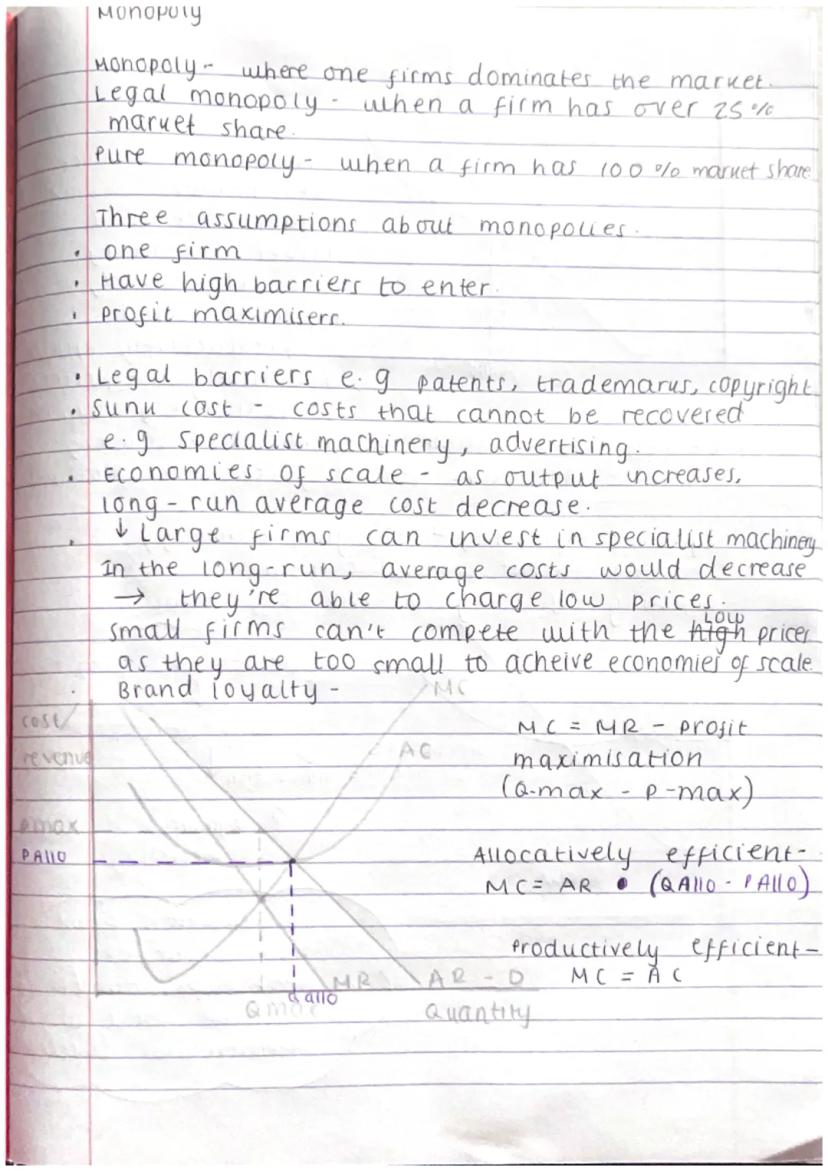 Monopoly
Monopoly - where one firms dominates the market.
Legal monopoly - when a firm has over 25%
market share.
Pure monopoly - when a firm has 100% market share
Three assumptions about monopolies.
• one firm
• Have high barriers to enter.
• profit maximisers.
• Legal barriers e.g patents, trademarks, copyright
• Sunk cost - costs that cannot be recovered
e.g specialist machinery, advertising.
• Economies of scale - as output increases,
long-run average cost decrease.
• ↓ Large firms can invest in specialist machinery
In the long-run, average costs would decrease
→ they're able to charge low prices.
small firms can't compete with the high LOW prices
as they are too small to acheive economies of scale
• Brand loyalty -
MC
cost/
revenue
AC
MC = MR - profit
maximisation
(Q-max - P-max)
pmax
PAllo
Allocatively efficient-
MC = AR • (QAllo - PAllo)
Productively efficient-
MC = AC
MR
AR - D
Qmax
Qallo
Quantity